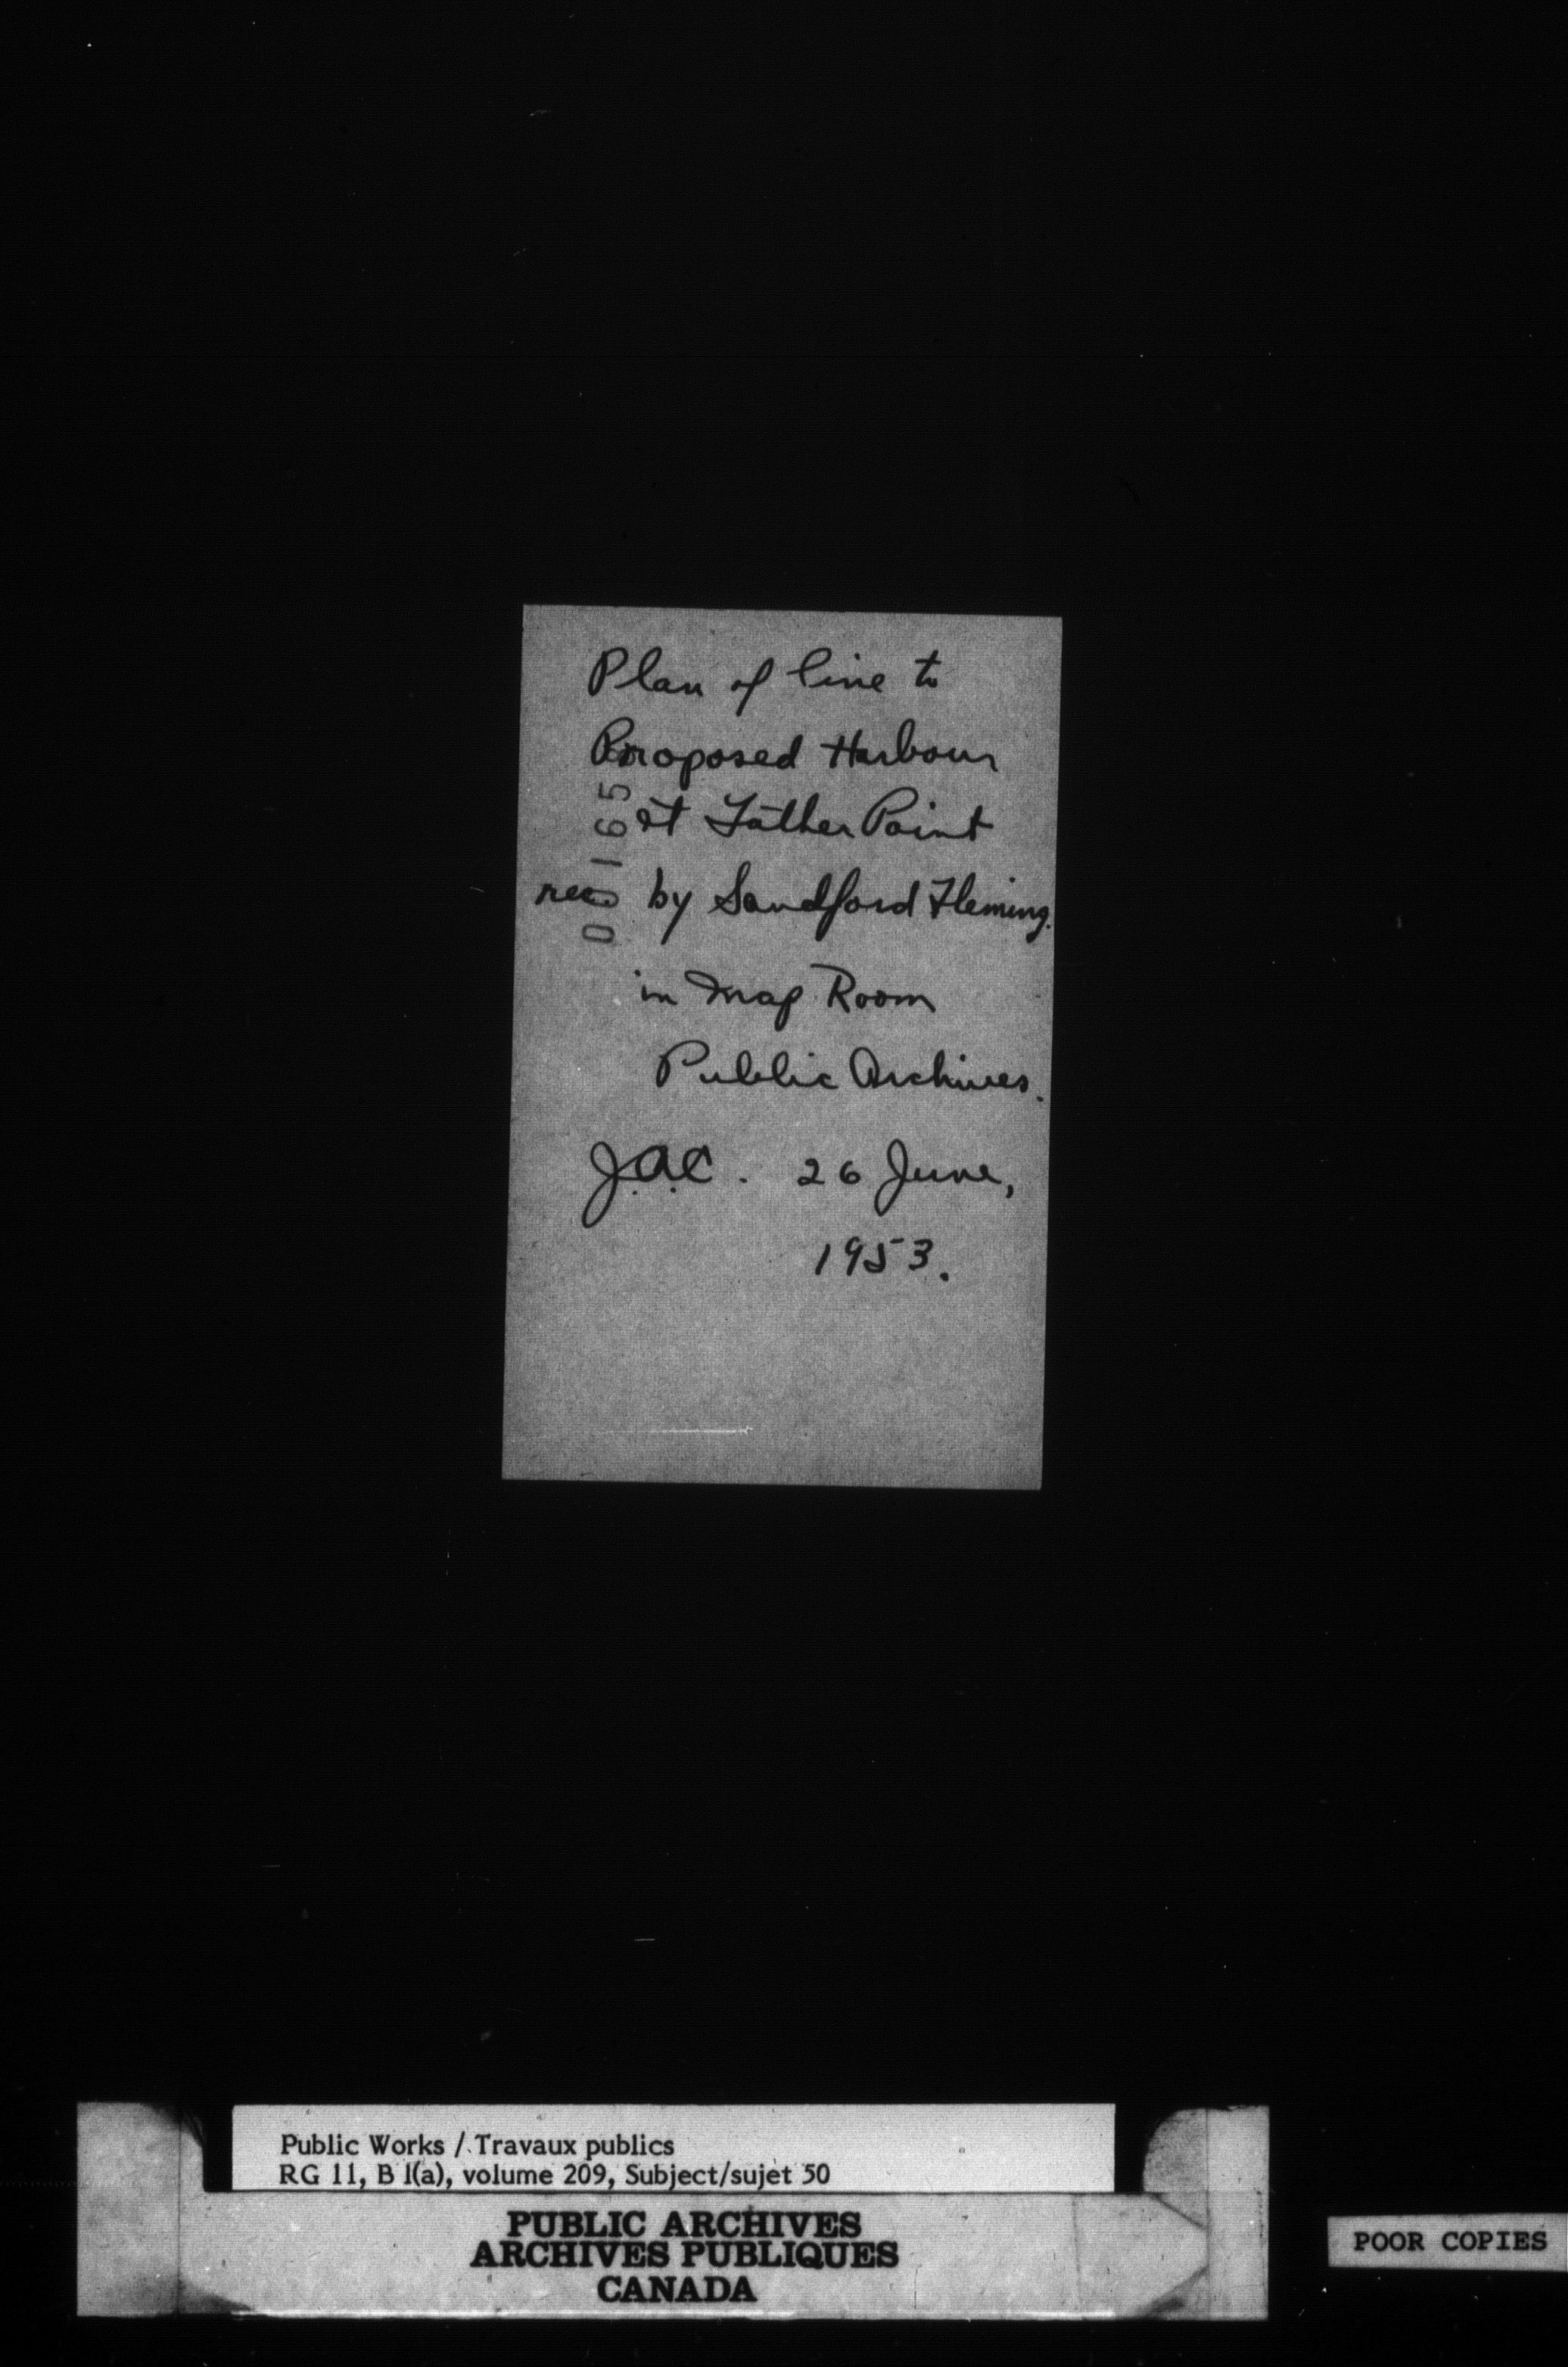 Plan of line to
Proposed Harbour
at Father Point
by Sandford Fleming.
in Map Room
Public Archives.
J.A.C. 26 June,
1953.
000165
Public Works / Travaux publics
RG 11, B 1(a), volume 209, Subject/sujet 50
PUBLIC ARCHIVES
ARCHIVES PUBLIQUES
CANADA
POOR COPIES